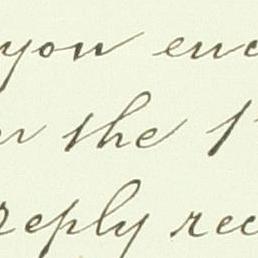 you enc
the 1
reply rec